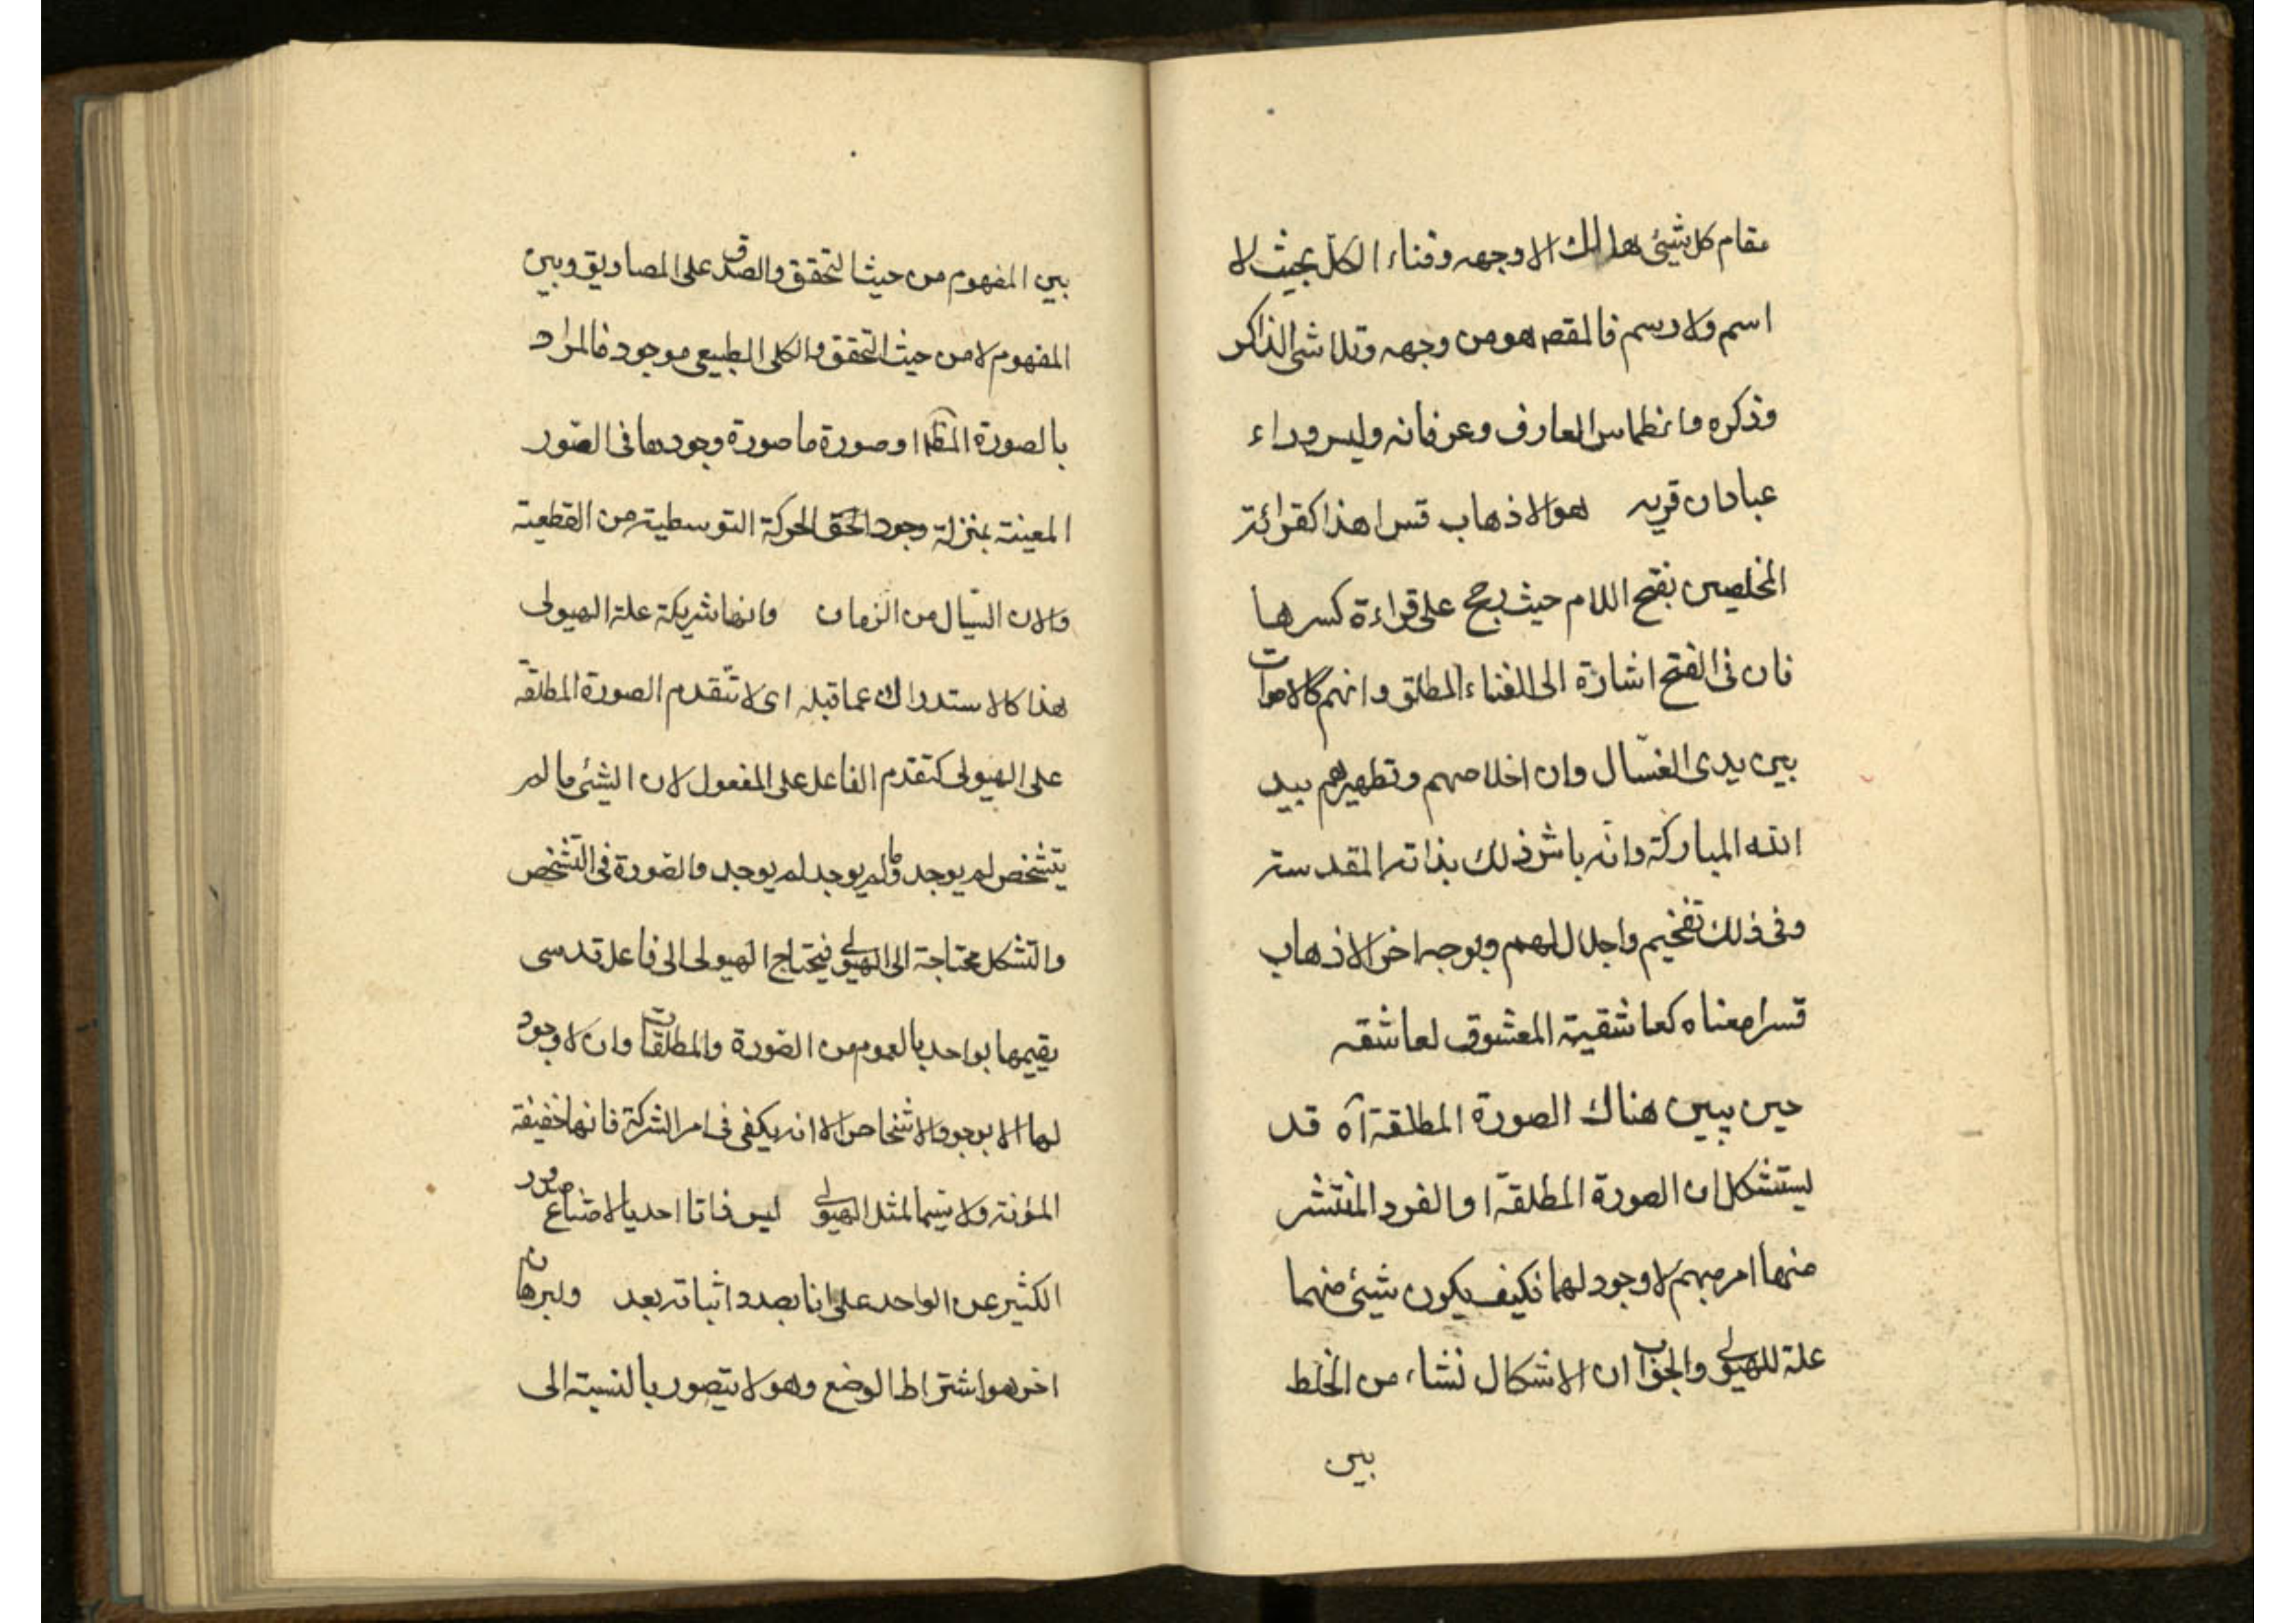 مقام كل شيئ هالك الا وجهه وفناء الكل بحيث لا
اسم ولا رسم فالمقصد هو من وجهه وتلاشى الذاكر
وذكره وانطماس العارف وعرفانه وليس وراء
عبادان قريه هو الاذهاب قسرا هذا كقرائة
المخلصين بفتح اللام حيث رجح على قراءة كسرها
فان فى الفتح اشارة الى الفناء المطلق وانهم كالاموات
بين يدى الغسّال وان اخلاصهم وتطهيرهم بيد
الله المباركة وانّه باشر ذلك بذاته المقدسة
وفى ذلك تفخيم واجلال لهم وبوجه اخر الاذهاب
قسرا معناه كعاشقية المعشوق لعاشقه
حين يبين هناك الصورة المطلقة آه قد
يستشكل ان الصورة المطلقة او الفرد المنتشر
منها امر مبهم لا وجود لهما فكيف يكون شيئ منهما
علة للهيولى والجواب ان الاشكال نشاء من الخلط
بين
بين المفهوم من حيث التحقق والصدق على المصاديق وبين
المفهوم لا من حيث التحقق والكلى الطبيعى موجود فالمراد
بالصورة المطلقة او صورة ما صورة وجودها فى الصّور
المعينة بمنزلة وجود الحركة التوسطية من القطعية
والان السّيال من الزمان وانها شريكة علة الهيولى
هذا كالاستدراك عما قبله اى لا تتقدم الصورة المطلقة
على الهيولى كتقدم الفاعل على المفعول لان الشيئ ما لم
يتشخص لم يوجد وما لم يوجد لم يوجد والصّورة فى التشخص
والتشكل محتاجة الى الهيولى فيحتاج الهيولى الى فاعل قدسى
يقيمها بواحد بالعموم من الصّورة والمطلقات وان لا وجود
لها الا بوجود الاشخاص الا انه يكفى فى امر الشركة فانها خفيفة
المؤنة ولا سيما لمثل الهيولى ليس ذاتا احديا لامتناع صدور
الكثير عن الواحد على انا بصدد اثباته بعد ولبرهان
اخر هو اشتراط الوضع وهو لا يتصور بالنسبة الى